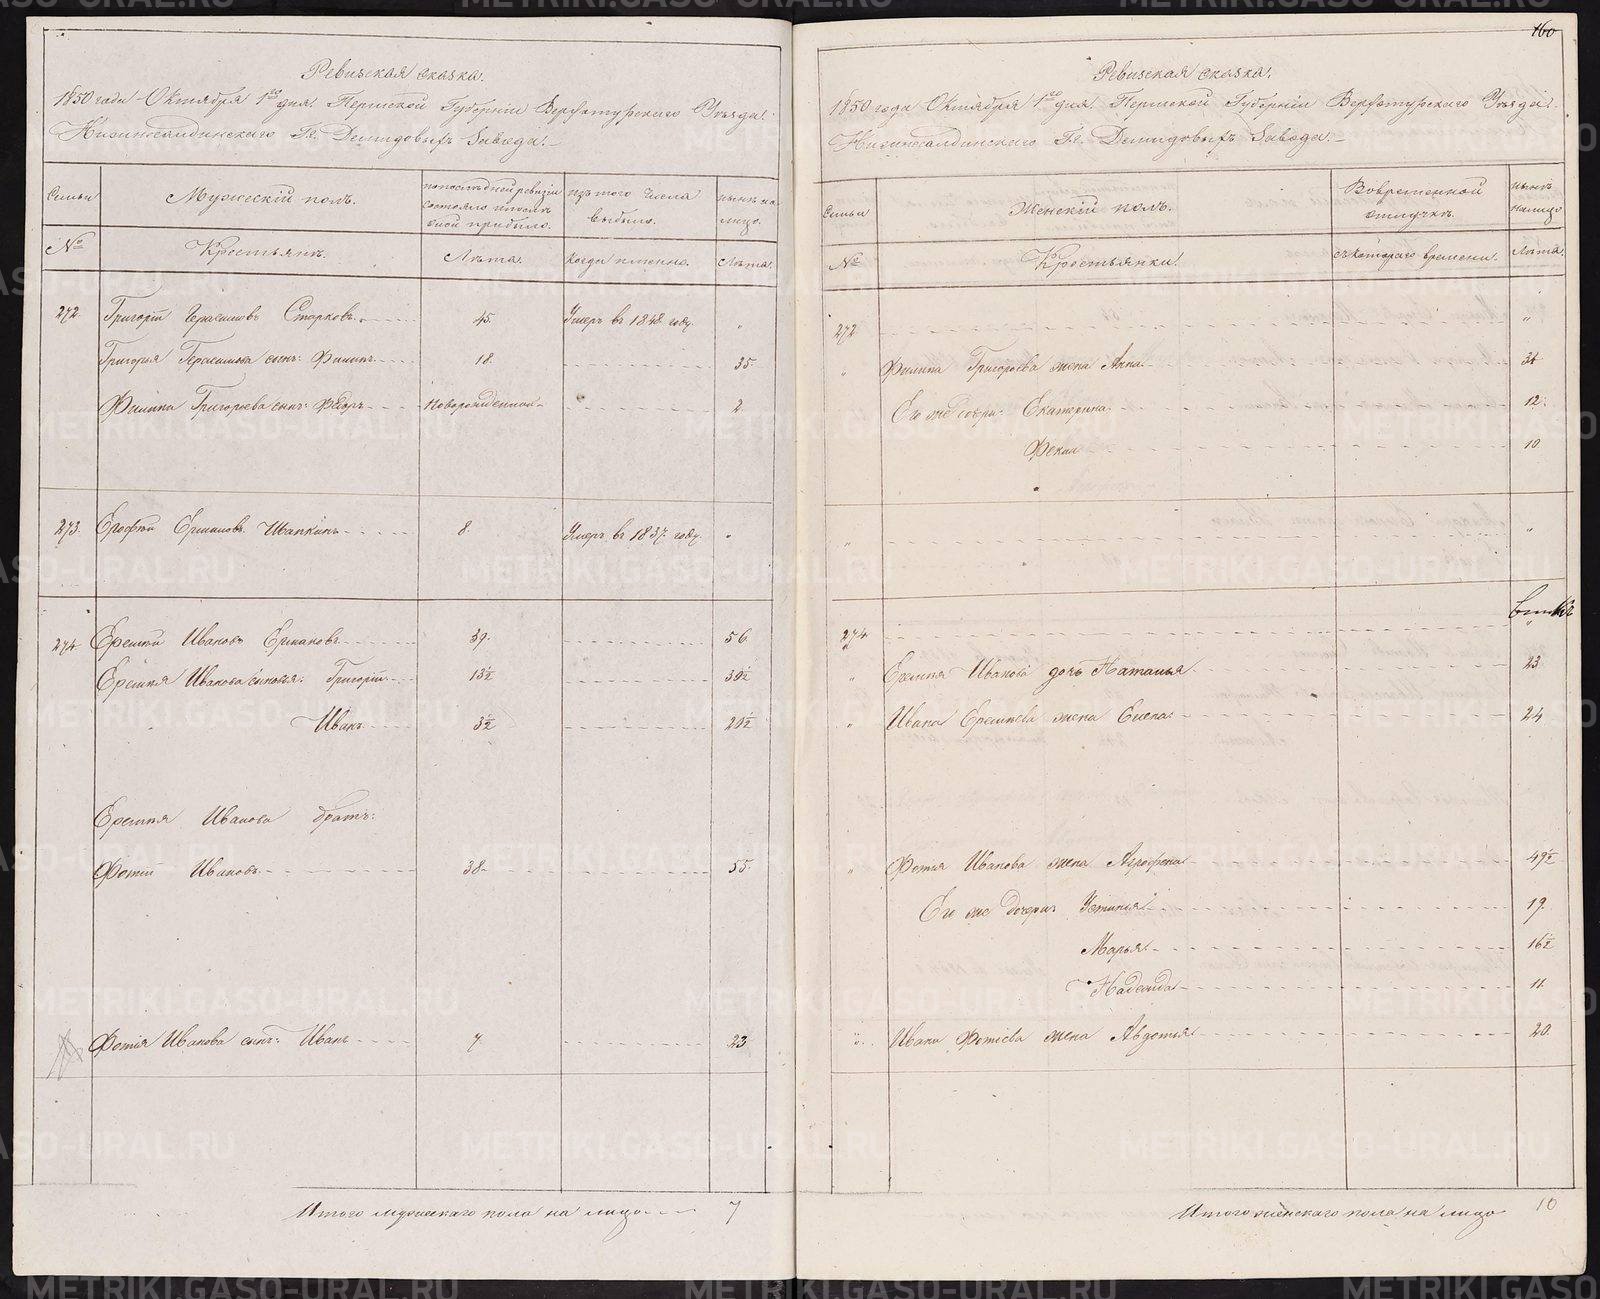 Ревизская сказка.
1850 года Октября 1го дня. Пермской Губернии Верхотурскаго Уѣзда.
Нижнесалдинскаго Гг. Демидовыхъ Завода.
Семьи
Мужескій полъ.
по последней ревизіи состояло и после оной прибыло.
изъ того числа выбыло.
нынѣ на лицо.
№
Крестьянъ.
Лѣта.
когда именно.
Лѣта.
272. Григорій Герасимовъ Старковъ. 45. Умеръ въ 1848 году. "
Григорья Герасимова сынъ: Филипъ 18. 35.
Филипа Григорьева сынъ: Ѳедоръ Новорожденной 2.
273. Ерофѣй Ермаковъ Шапкинъ 8. Умеръ въ 1837 году. "
274 Еремѣй Ивановъ Ермаковъ 39. 56.
Еремѣя Иванова сыновья: Григорій 13½ 30½
Иванъ 3½ 20½
Еремѣя Иванова братъ:
Фотій Ивановъ 38. 55.
Фотія Иванова сынъ: Иванъ 7 23
Итого мужескаго пола на лицо 7
160
Ревизская сказка.
1850 года Октября 1го дня. Пермской Губерніи Верхотурскаго Уѣзда.
Нижнесалдинскаго Гг. Демидовыхъ Завода.
Семьи
Женскій полъ.
Во временной отлучкѣ.
нынѣ на лицо
№
Крестьянки.
съ котораго времени.
Лѣта.
272 "
" Филипа Григорьева жена Анна 34
Его же дочери: Екатерина 12.
Фекла 10
" "
274 "
" Еремѣя Иванова дочь Наталья 23
" Ивана Еремѣева жена Елена 24
" Фотія Иванова жена Агрофена 49½
Его же дочери: Устинья 19.
Марья 16½
Надежда 11
" Ивана Фотіева жена Авдотья 20.
Итого женскаго пола на лицо 10
METRIKI.GASO-URAL.RU